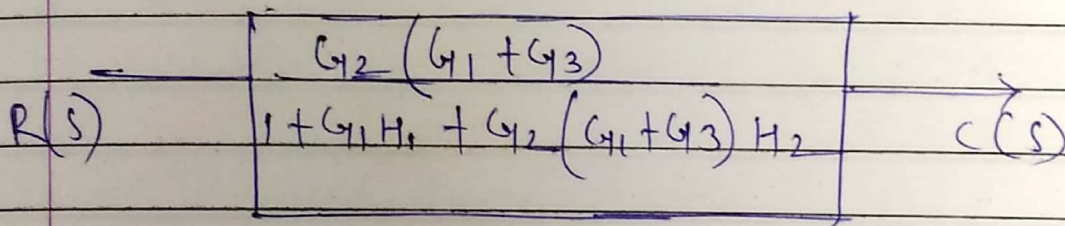 G2 (G1 + G3)
R(S) 1 + G1 H1 + G2 (G1 + G3) H2 C(S)